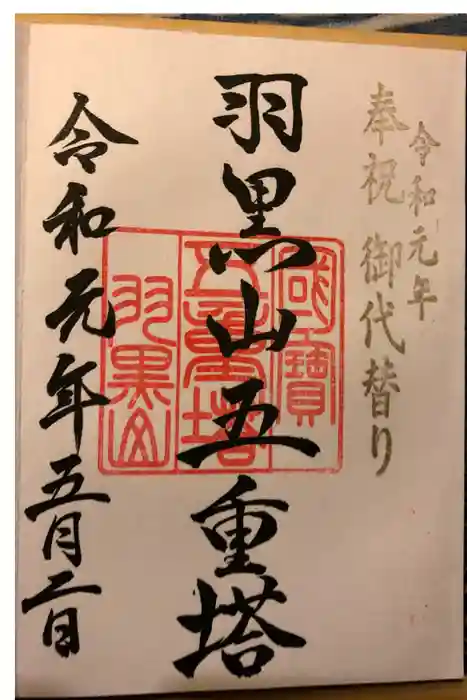 令和元年
奉祝 御代替り
羽黒山五重塔
國寶
五重塔
羽黒山
令和元年五月二日